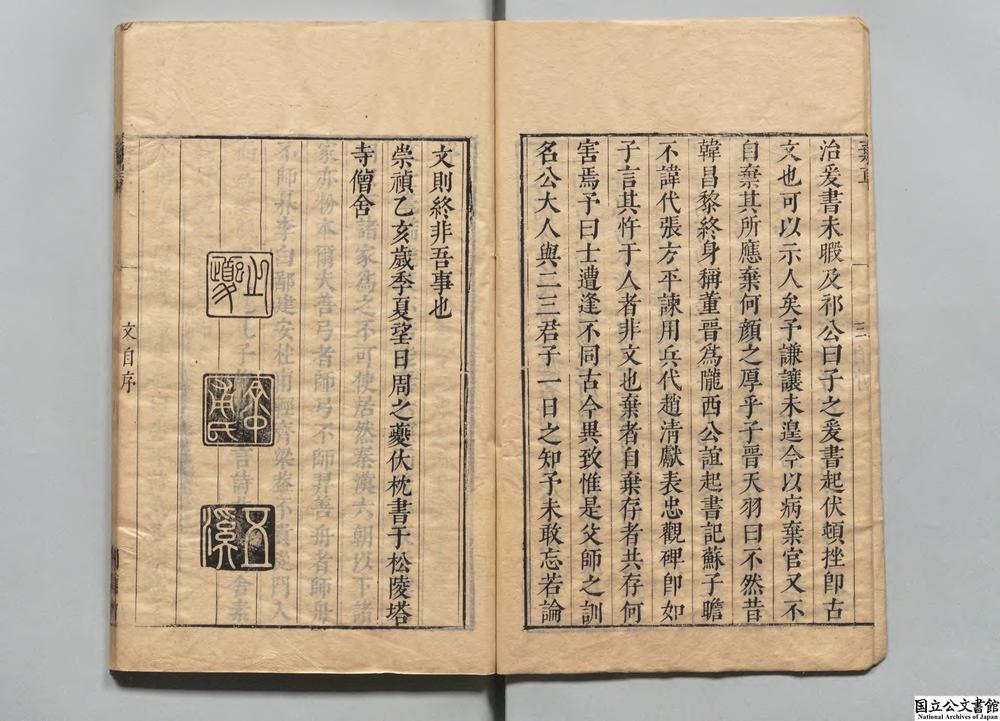 治爰書未暇及祁公曰子之爰書起伏頓挫卽古
文也可以示人矣予謙讓未遑今以病棄官又不
自棄其所應棄何顏之厚乎子晉天羽曰不然昔
韓昌黎終身稱董晉爲隴西公誼起書記蘇子瞻
不諱代張方平諫用兵代趙清獻表忠觀碑卽如
子言其忤于人者非文也棄者自棄存者共存何
害焉予曰士遭逢不同古今異致惟是父師之訓
名公大人與二三君子一日之知予未敢忘若論
文則終非吾事也
崇禎乙亥歲季夏望日周之夔伏枕書于松陵塔
寺僧舍
文自序
之夔
五溪
国立公文書館
National Archives of Japan